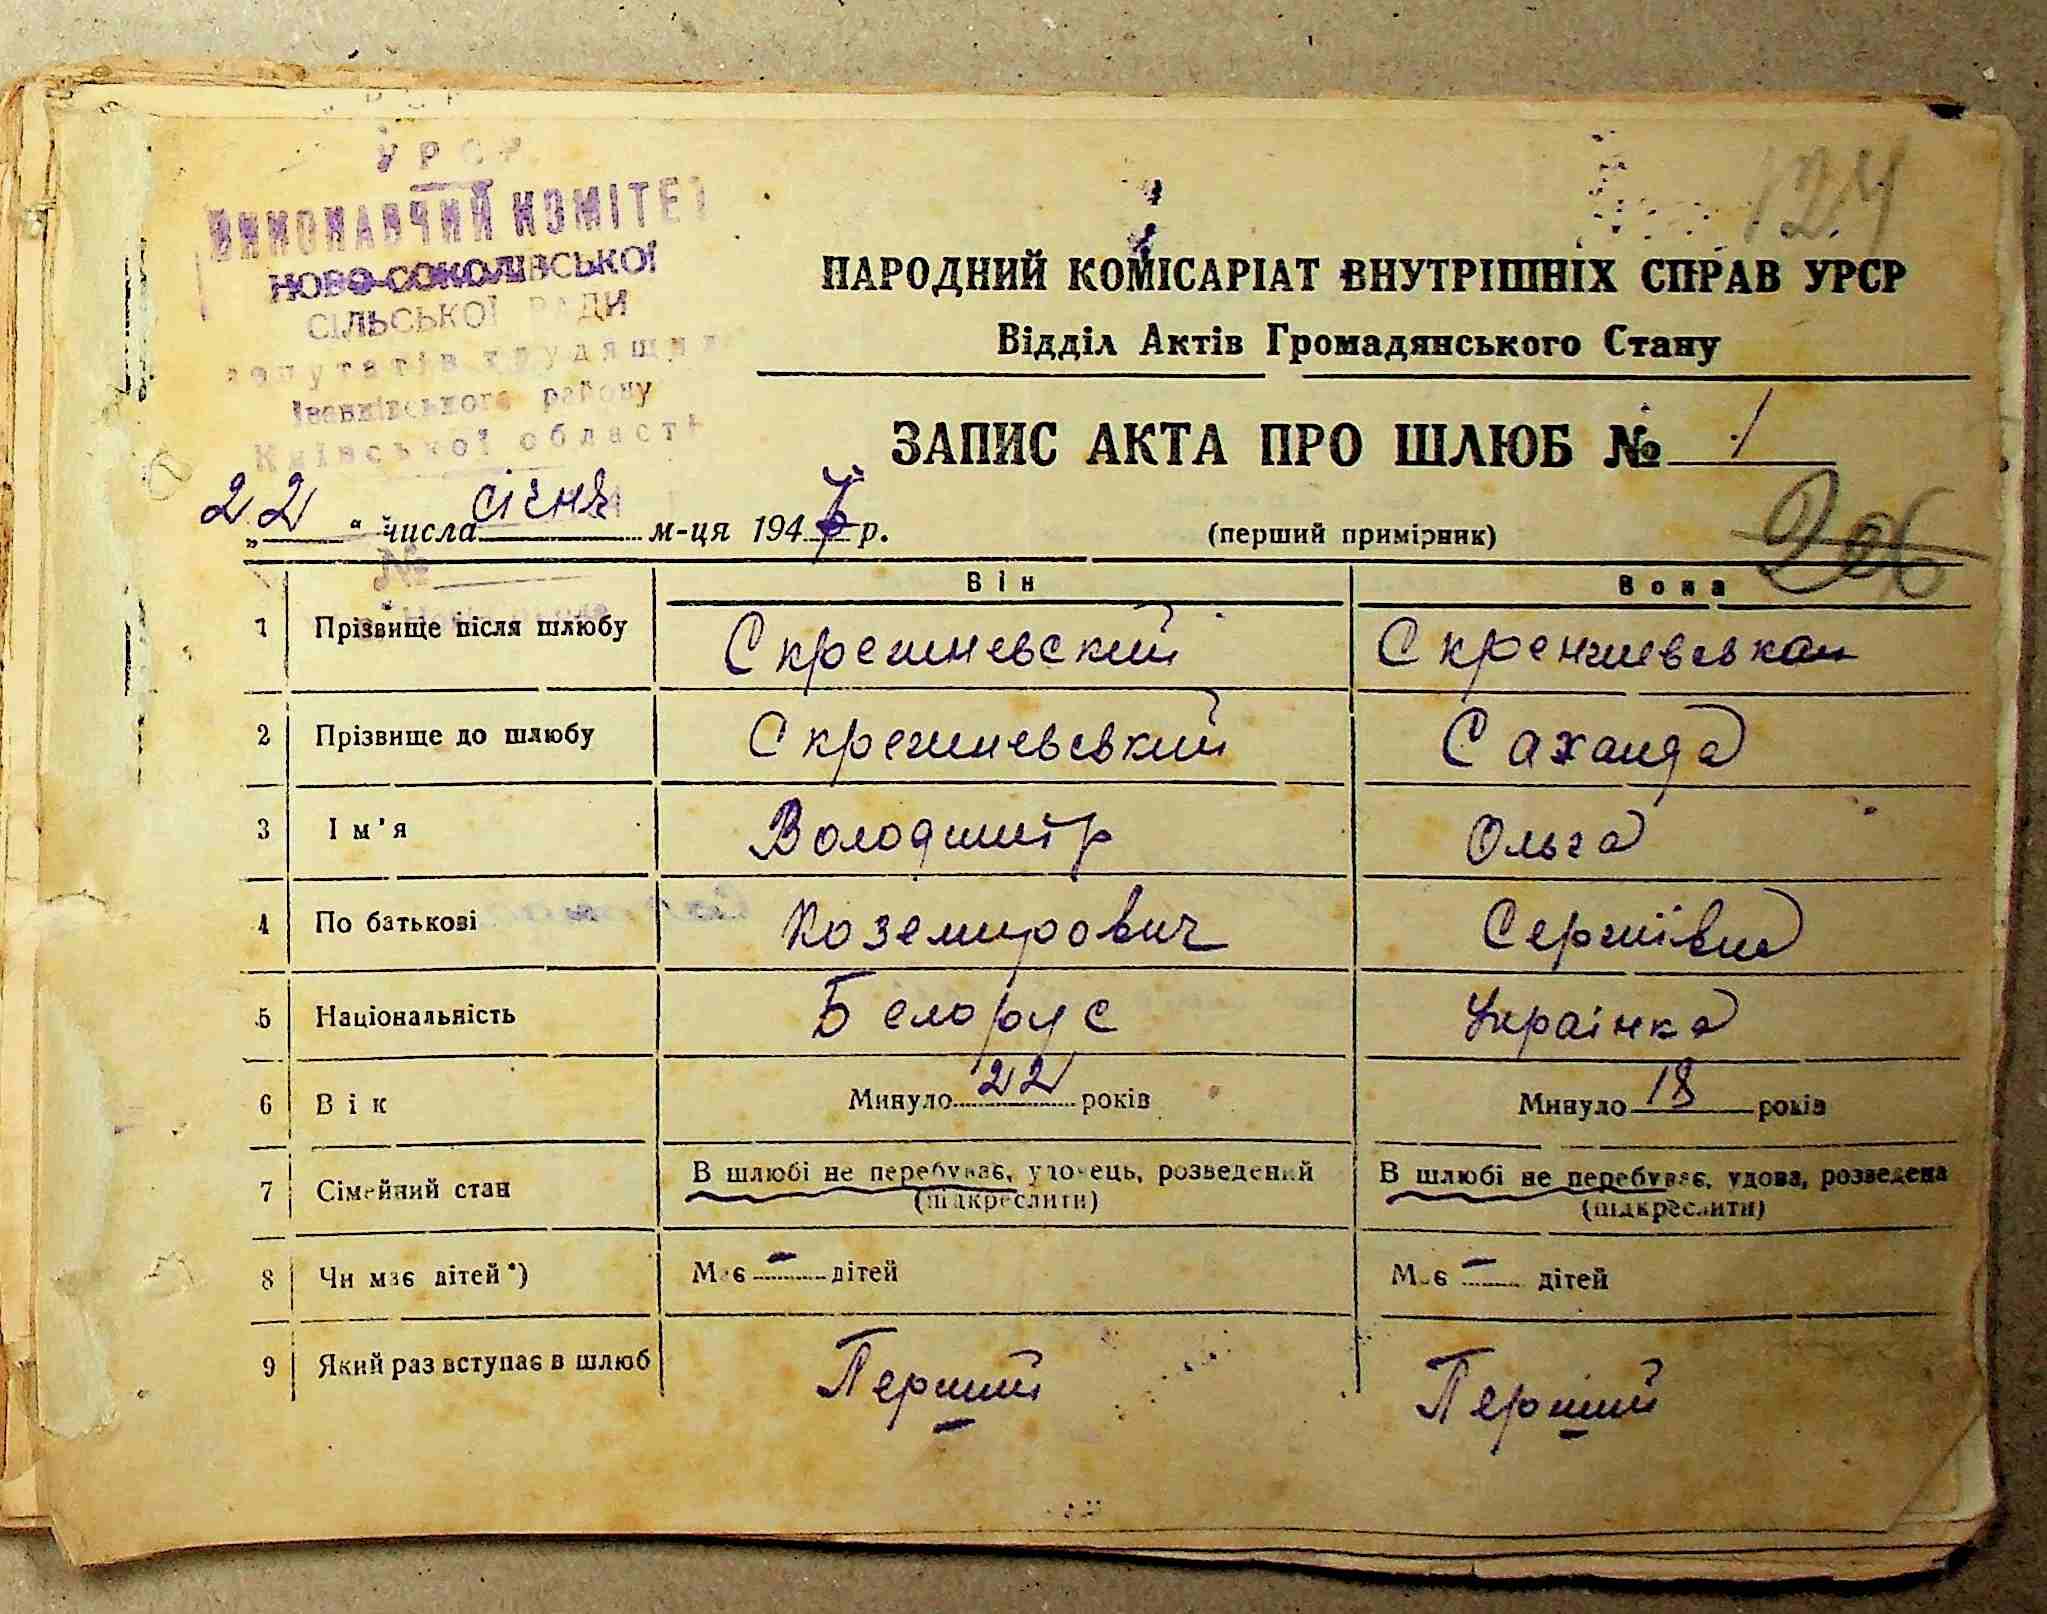 УРСР
ВИКОНАВЧИЙ КОМІТЕТ
НОВО-СОКОЛІВСЬКОЇ
СІЛЬСЬКОЇ РАДИ
депутатів трудящих
Іванківського району
Київської області
№
124
НАРОДНИЙ КОМІСАРІАТ ВНУТРІШНІХ СПРАВ УРСР
Відділ Актів Громадянського Стану
ЗАПИС АКТА ПРО ШЛЮБ № 1
„22“ числа січня м-ця 1947 р. (перший примірник)
206
Він Вона
1 Прізвище після шлюбу Скрешневский
2 Прізвище до шлюбу Скрешневський Саханда
3 Ім'я Володимір Ольга
4 По батькові Коземирович Сергиївна
5 Національність Белорус Українка
6 Вік Минуло 22 років Минуло 18 років
7 Сімейний стан В шлюбі не перебуває, удовець, розведений В шлюбі не перебуває, удова, розведена
(підкреслити) (підкреслити)
8 Чи має дітей*) Має — дітей Має — дітей
9 Який раз вступає в шлюб Перший Перший